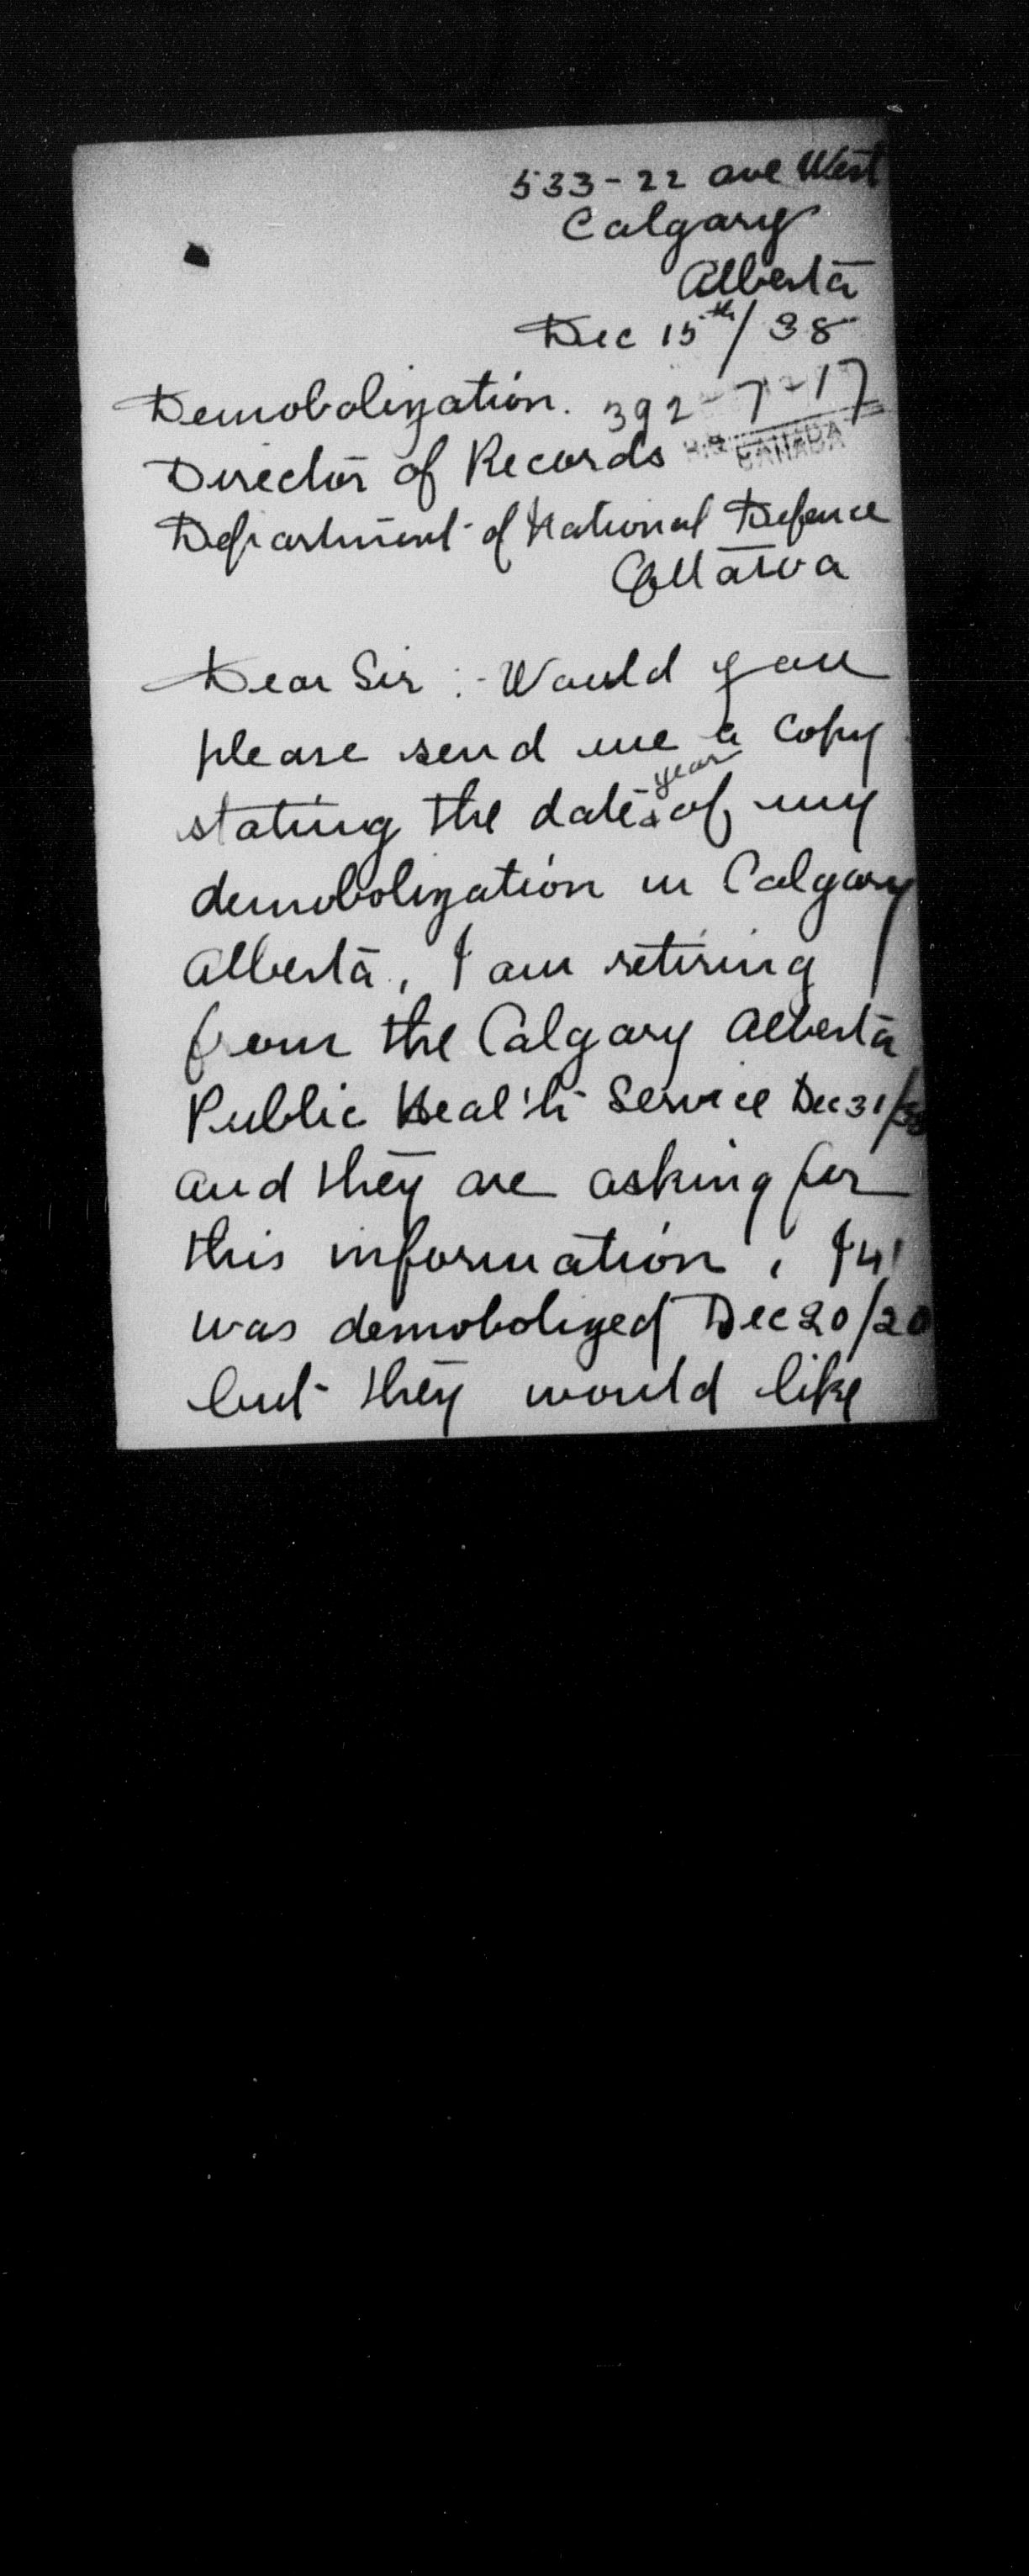 533-22 ave West
Calgary
Alberta
Dec 15th/38
Demobolization. 392-7-17
Director of Records H.Q. CANADA
Department of National Defence
Ottawa
Dear Sir :- Would you
please send me a copy
year
stating the date & of my
demobolization in Calgary
Alberta, I am retiring
from the Calgary Alberta
Public Health Service Dec 31/38
and they are asking for
this information, I
was demobolized Dec 20/20
but they would like